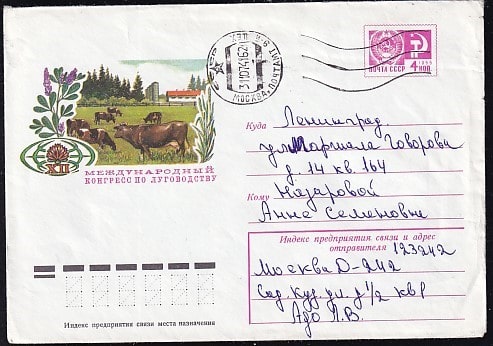 ПОЧТАМТ 9-Й ЦЕХ
311074 1621
МОСКВА
ПОЧТА СССР 1966
4 КОП.
XII
МЕЖДУНАРОДНЫЙ
КОНГРЕСС ПО ЛУГОВОДСТВУ
Куда Ленинград
ул Маршала Говорова
д. 14 кв. 164
Кому Назаровой
Анне Семеновне
Индекс предприятия связи и адрес
отправителя 123242
Москва Д-242
Сад. Куд. ул. д 1/2 кв
Адо Л.В.
Индекс предприятия связи места назначения